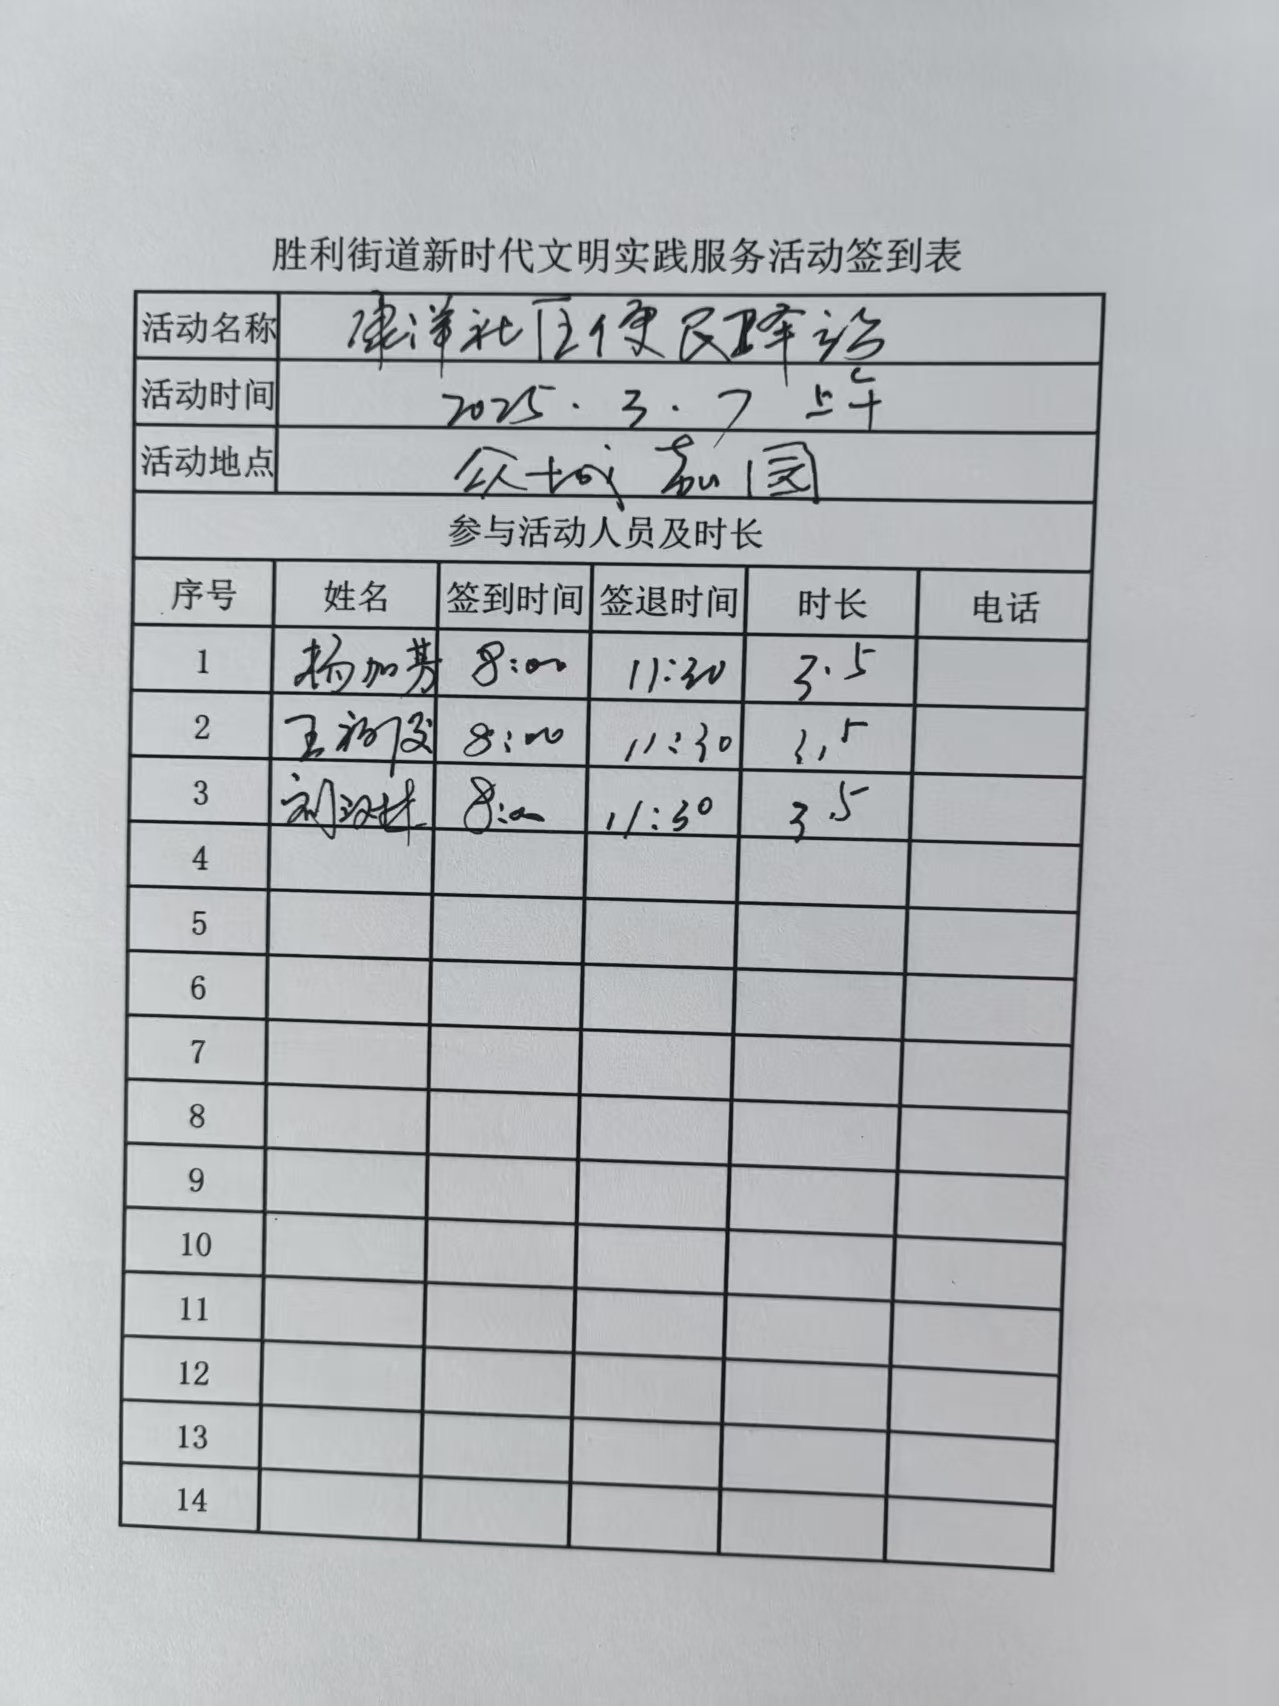 胜利街道新时代文明实践服务活动签到表
活动名称 康洋社区便民驿站
活动时间 2025.3.7 上午
活动地点 众城嘉园
参与活动人员及时长
序号 姓名 签到时间 签退时间 时长 电话
1 杨加芳 8:00 11:30 3.5
2 王 8:00 11:30 3.5
3 刘 8:00 11:30 3.5
4
5
6
7
8
9
10
11
12
13
14